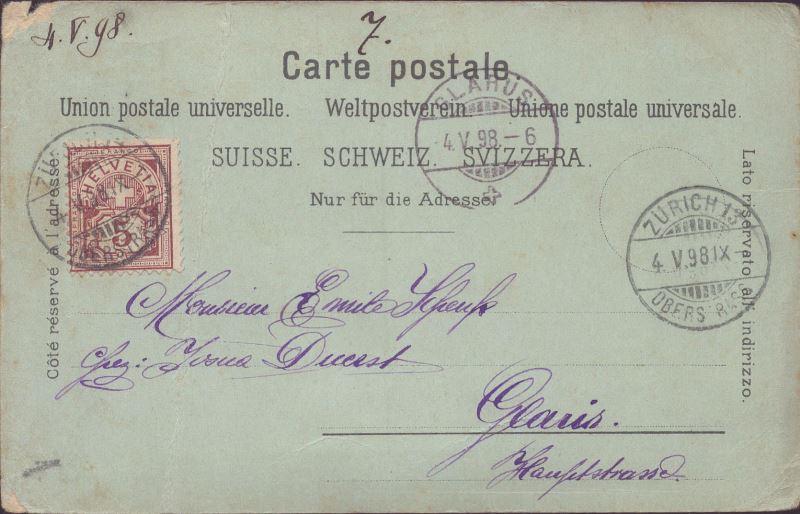 4. V. 98.
7.
Carte postale.
Union postale universelle. Weltpostverein. Unione postale universale.
SUISSE. SCHWEIZ. SVIZZERA.
Nur für die Adresse.
Côté réservé à l'adresse.
Lato riservato all' indirizzo.
FRANCO
HELVETIA
5
GLARUS
4. V. 98. - 6
ZÜRICH 13
4. V. 98. IX -
OBERSTRASS
Monsieur Emile Schenk
chez: Josua Duerst
Glaris.
Hauptstrasse.